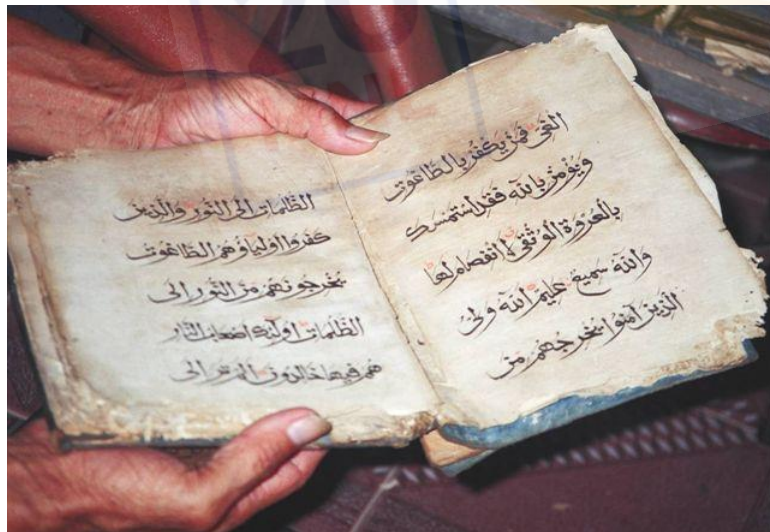 الغي فمن يكفر بالطاغوت
ويؤمن بالله فقد استمسك
بالعروة الوثقى لا انفصام لها
والله سميع عليم الله ولي
الذين آمنوا يخرجهم من
الظلمات الى النور والذين
كفروا اولياؤهم الطاغوت
يخرجونهم من النور الى
الظلمات اوليك اصحاب النار
هم فيها خالدون الم تر الى